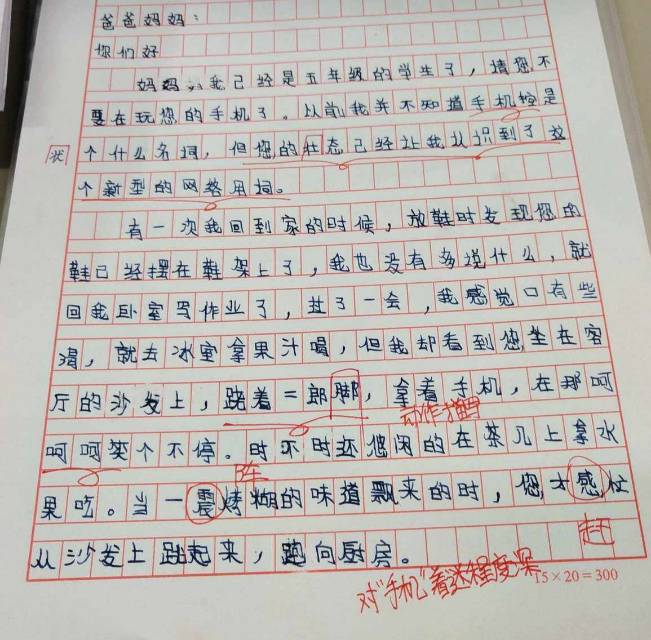 爸爸妈妈:
你们好
妈妈,我已经是五年级的学生了,请您不
要在玩您的手机了。以前我并不知道手机控是
个什么名词,但您的壮态已经让我认识到了这
状
个新型的网络用词。
有一次我回到家的时候,放鞋时发现您的
鞋已经摆在鞋架上了,我也没有多说什么,就
回我卧室写作业了,过了一会,我感觉口有些
渴,就去冰室拿果汁喝,但我却看到您坐在客
厅的沙发上,跷着二郎脚,拿着手机,在那呵
动作描写
呵呵笑个不停。时不时还悠闲的在茶几上拿水
阵
果吃。当一震烤糊的味道飘来的时,您才感忙
赶
从沙发上跳起来,跑向厨房。
对"手机"着迷程度深
15×20=300